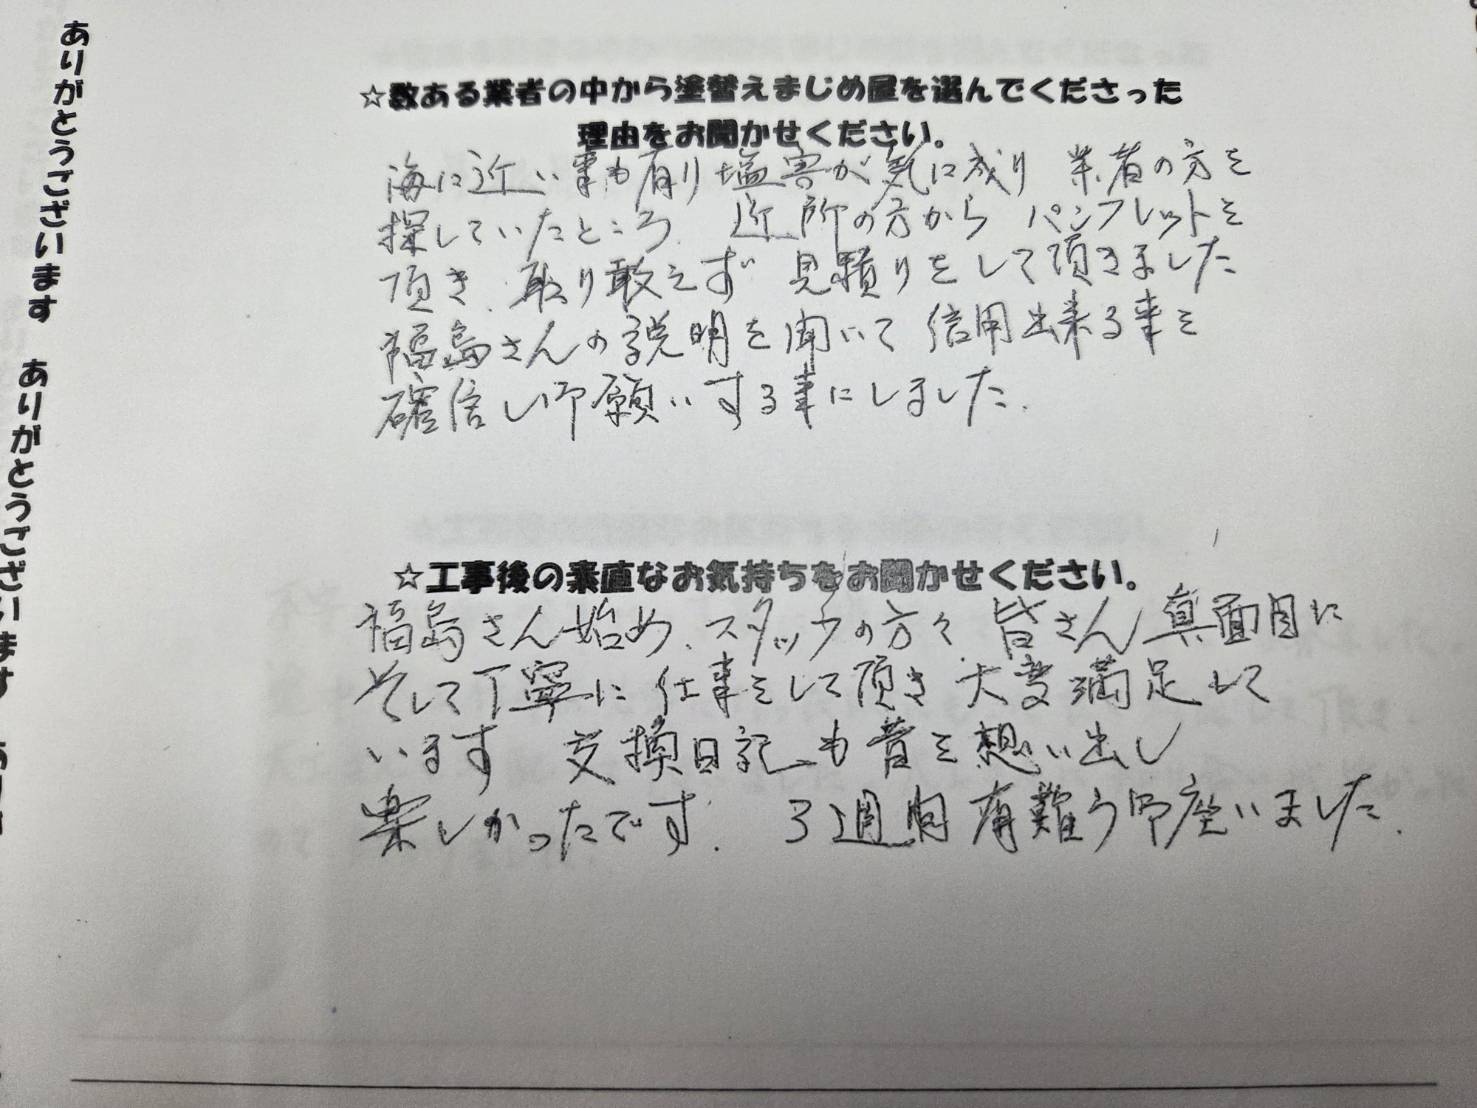 ありがとうございます
ありがとうございます
☆数ある業者の中から塗替えまじめ屋を選んでくださった
理由をお聞かせください。
海に近い事も有り塩害が気に成り 業者の方を
探していたところ、近所の方から パンフレットを
頂き、取り敢えず 見積りをして頂きました
福島さんの説明を聞いて 信用出来る事を
確信し御願いする事にしました.
☆工事後の素直なお気持ちをお聞かせください。
福島さん始め、スタッフの方々 皆さん 真面目に
そして丁寧に 仕事をして頂き 大変満足して
います 交換日記も昔を想い出し
楽しかったです. 3週間有難う御座いました.